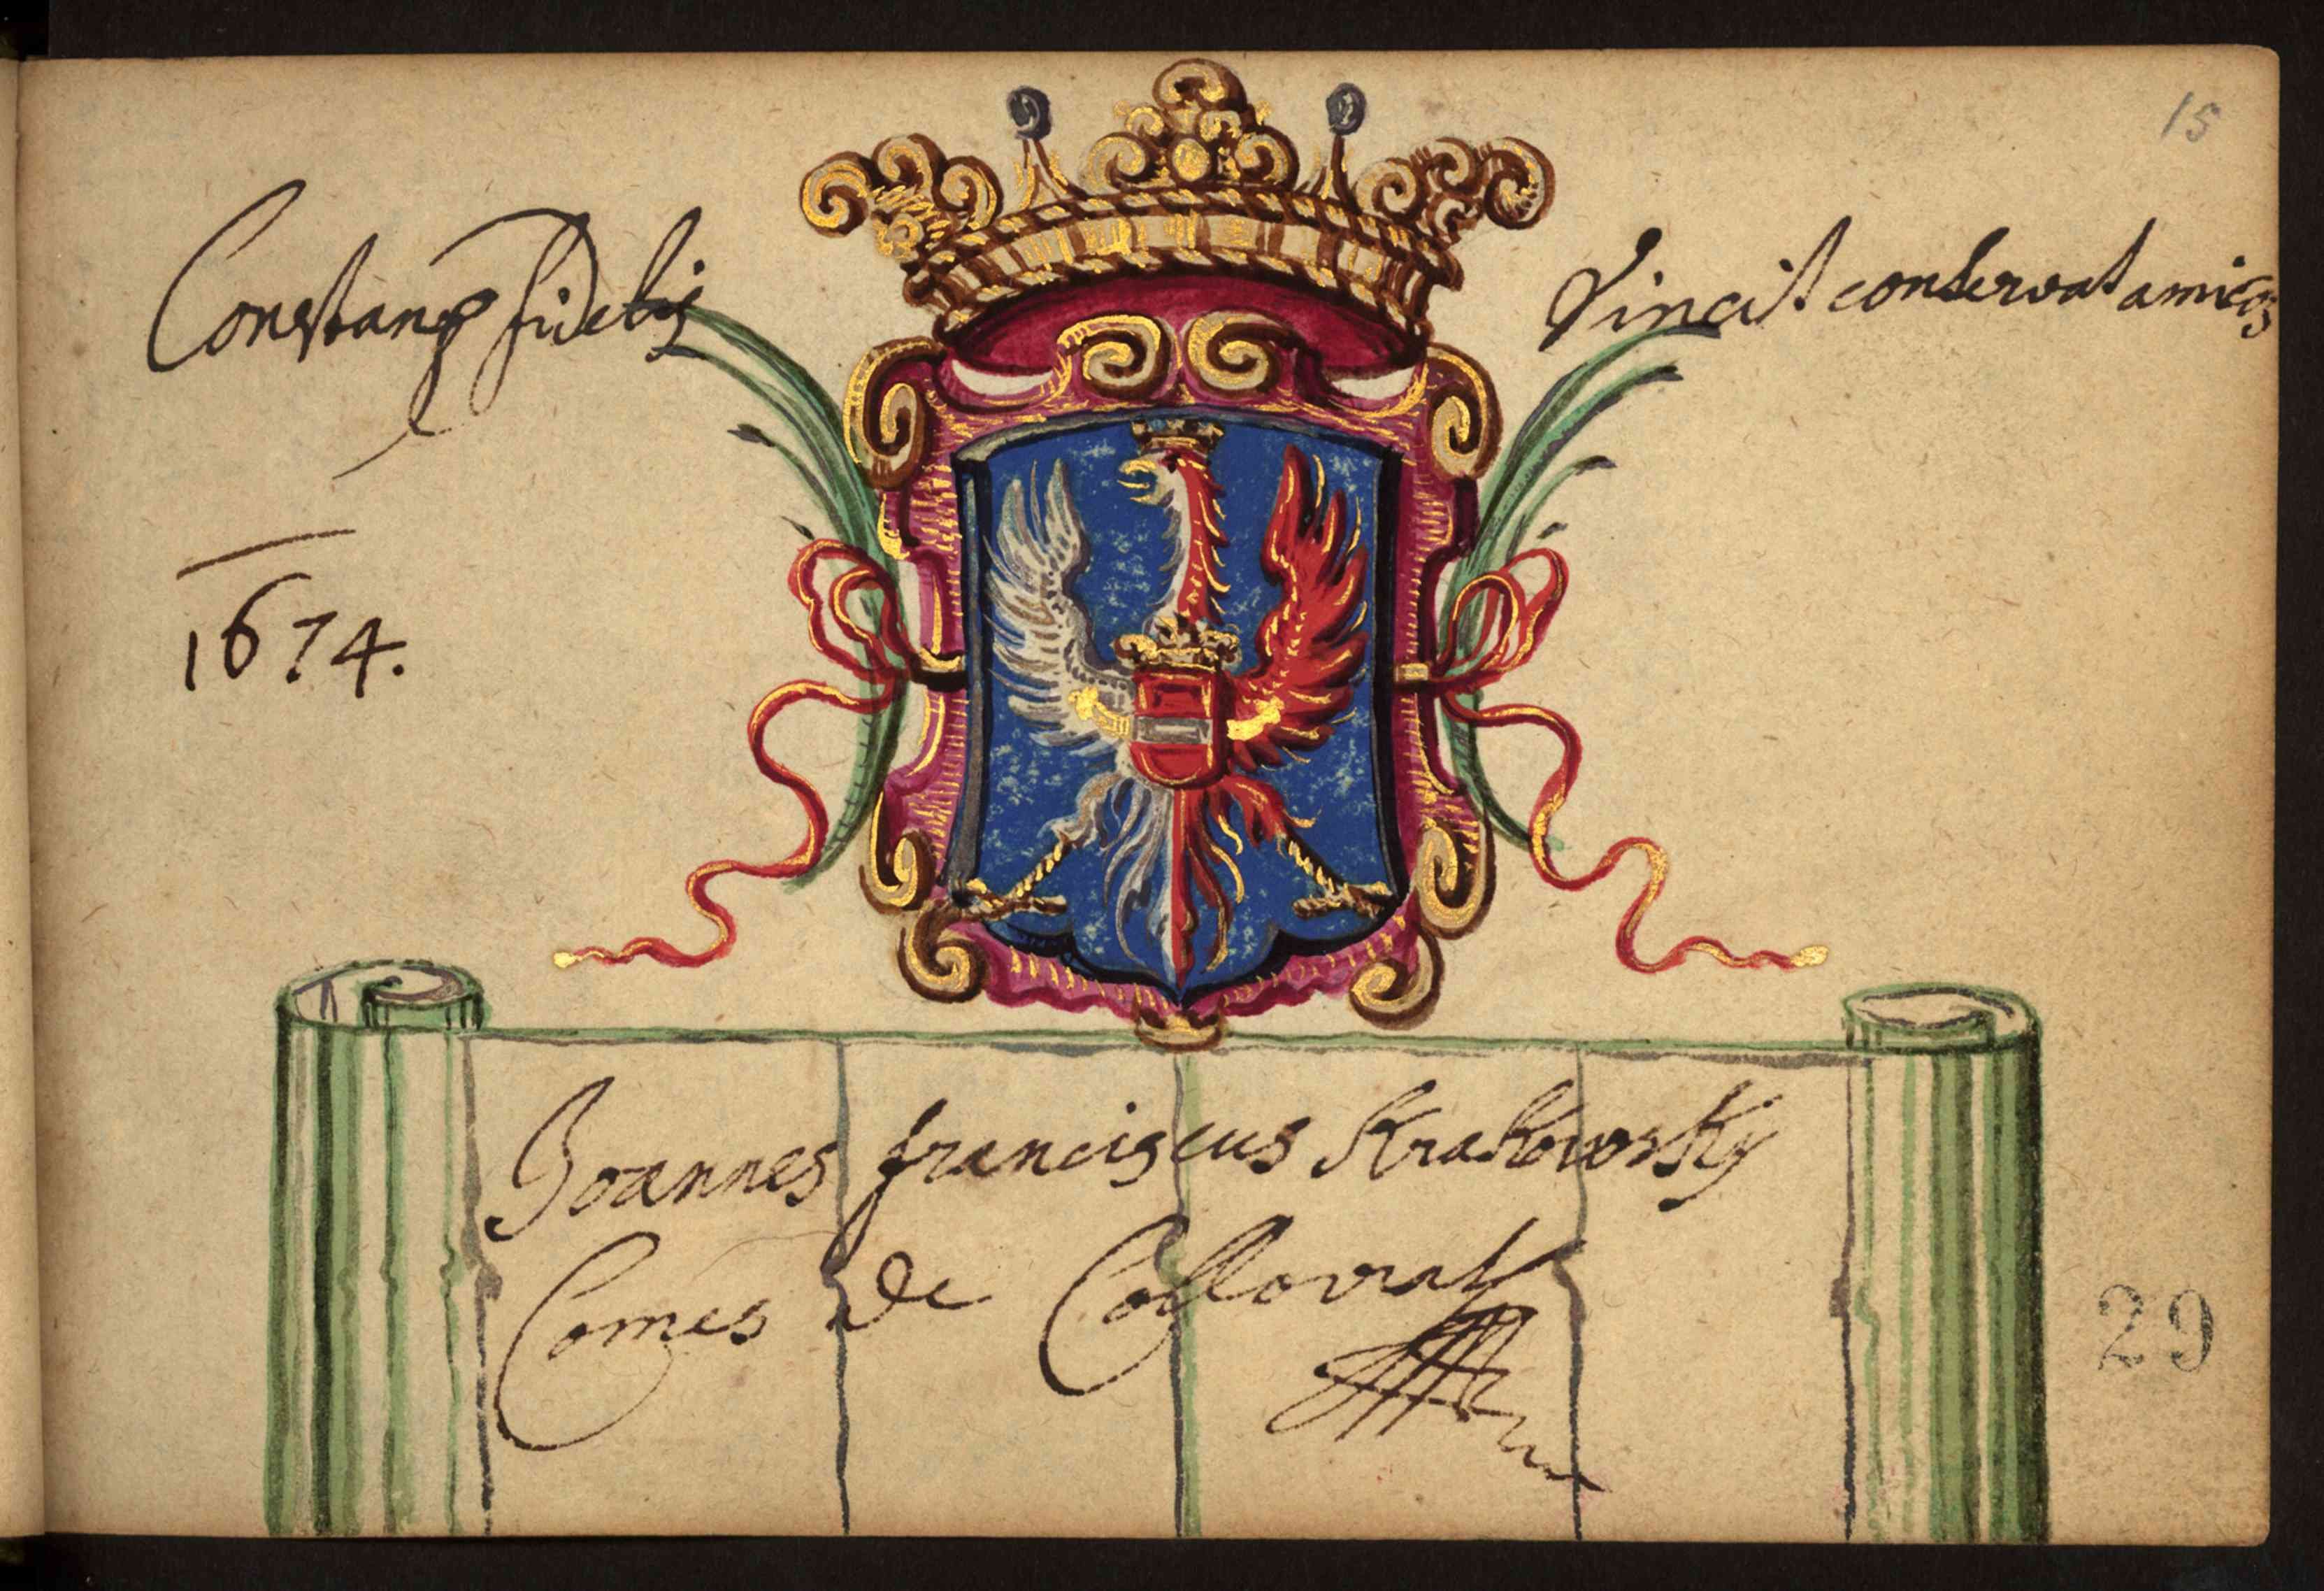 15
Constans fidelis Vincit conservat amicos
1674.
Joannes franciscus Krakowsky
Comes de Collovrat
29